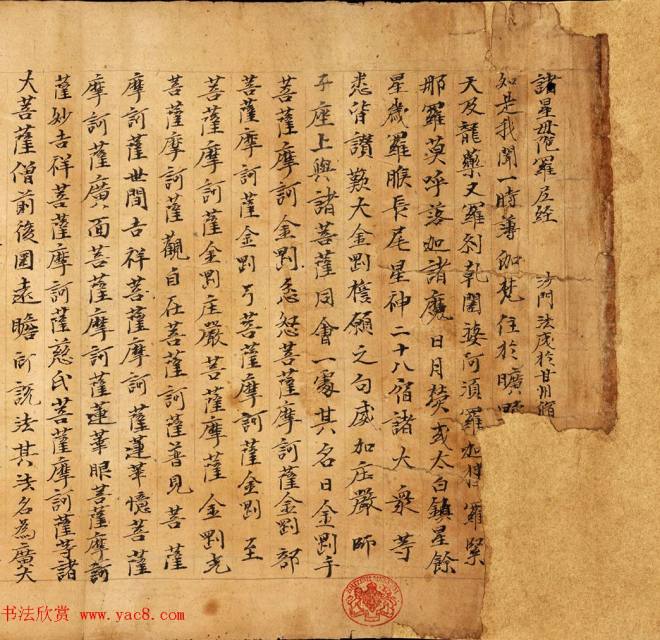 諸星母陀羅尼經 沙門法成於甘州脩
如是我聞一時薄伽梵住於曠野
天及龍藥叉羅刹乹闥婆阿須羅加樓羅緊
那羅莫呼落加諸魔日月熒或太白鎮星餘
星歲羅睺長尾星神二十八宿諸大衆等
悉皆讚歎大金剛願之句威加庄嚴師
子座上與諸菩薩同會一處其名曰金剛手
菩薩摩訶金剛忿怒菩薩摩訶薩金剛部
菩薩摩訶薩金剛弓菩薩摩訶薩金剛至
菩薩摩訶薩金剛庄嚴菩薩摩薩金剛光
菩薩摩訶薩觀自在菩薩摩訶薩普見菩薩
摩訶薩世間吉祥菩薩摩訶薩蓮華憶菩薩
摩訶薩廣面菩薩摩訶薩蓮華眼菩薩摩訶
薩妙吉祥菩薩摩訶薩慈氏菩薩摩訶薩等諸
大菩薩僧前後囙遶瞻所説法其法名為廣大
书法欣赏 www.yac8.com